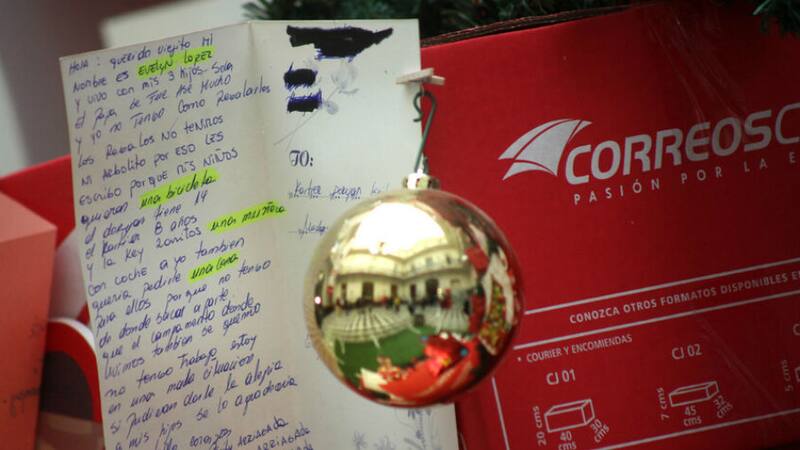 Hola: querido viejito mi
Nombre es EVELYN LOPEZ
y vivo con mis 3 hijos sola
el papa de fue ase mucho
y yo no tengo como regalarles
los regalos no tenmos
ni arbolito por eso les
escribo porque mis niños
quieren una bicicleta
el dorgan tiene 14
el Karfier 8 años
y la Key 2 añitos una muñeca
con coche a yo tambien
queria pedirle una cama
para ellos porque no tengo
de donde sacar a parte
que el campamento donde
vivimos tambien se quemo
no tengo trabajo estoy
en una mala situacion
si pudieran darle la alegria
a mis hijos se lo agradeceria
corazon
TO:
CORREOSC
PASIÓN POR LA E
CONOZCA OTROS FORMATOS DISPONIBLES EN
• COURIER Y ENCOMIENDAS
CJ 01
20 cms
40 cms
30 cms
CJ 02
7 cms
45 cms
32 cms
5